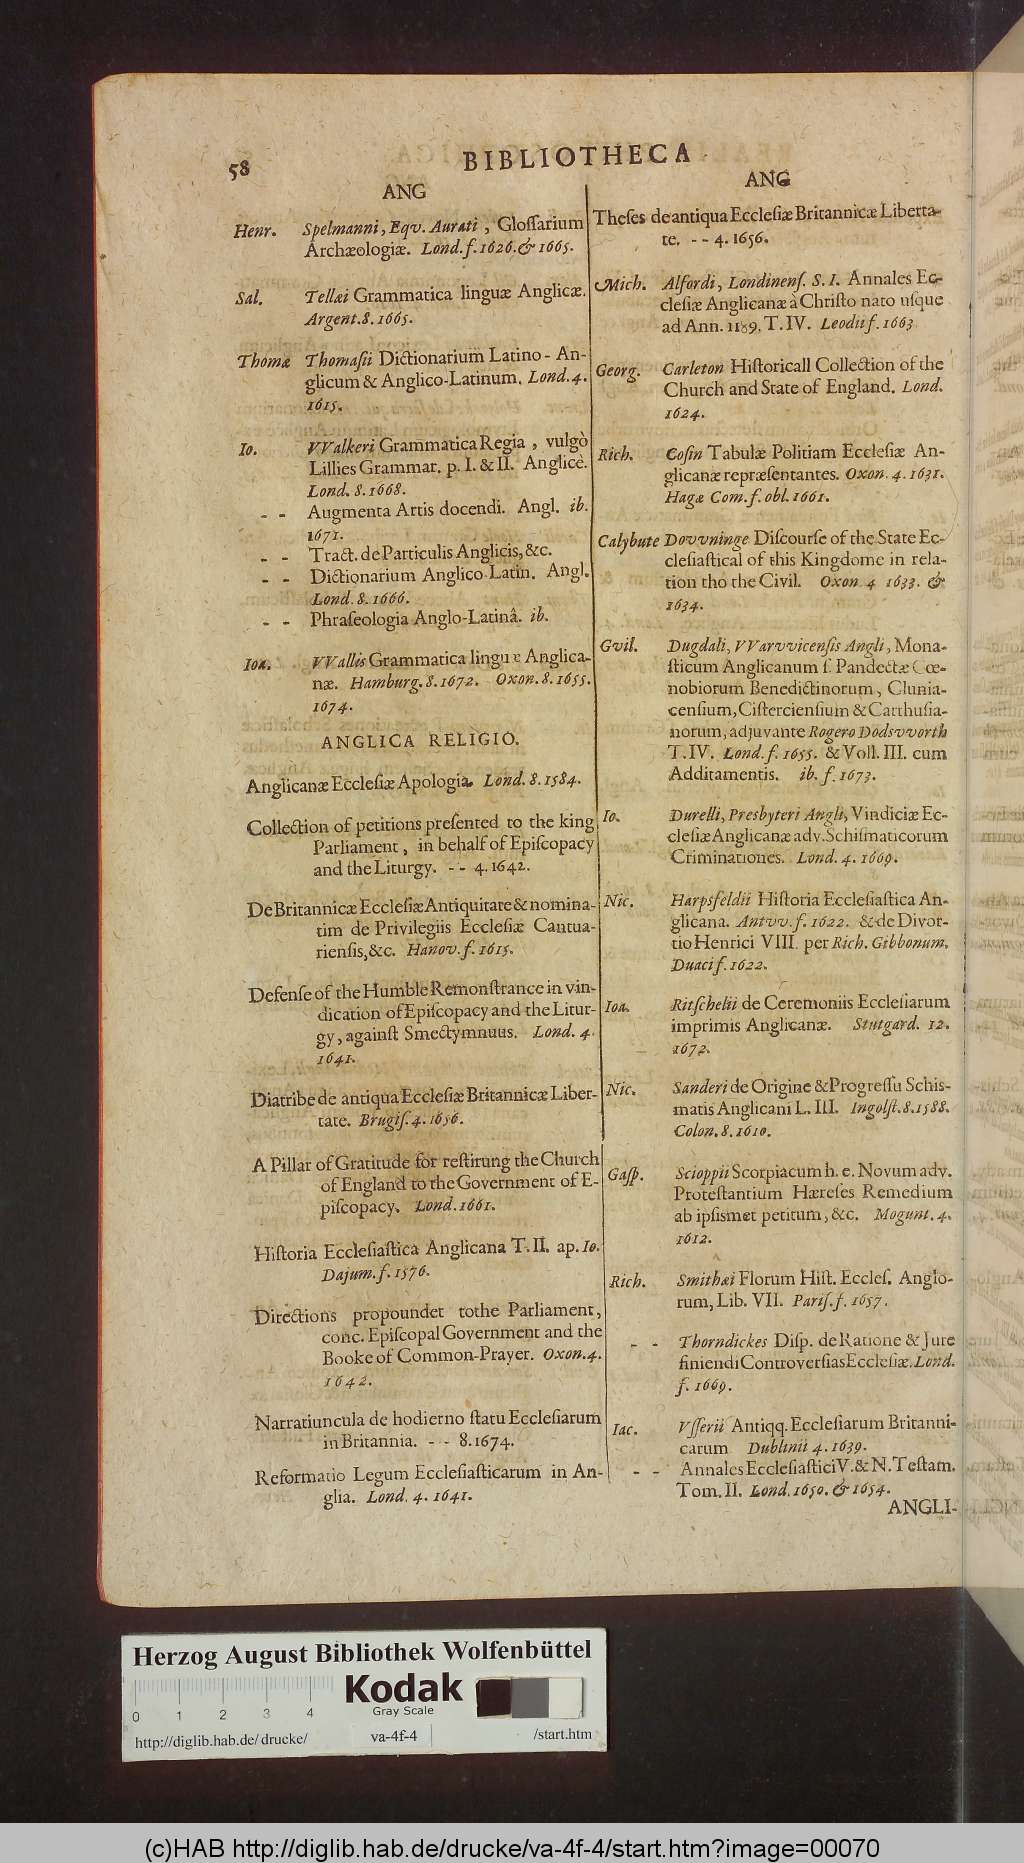 58
BIBLIOTHECA
ANG
Henr. Spelmanni, Eqv. Aurati, Gloſſarium
Archæologiæ. Lond. f. 1626. & 1665.
Sal. Tellæi Grammatica linguæ Anglicæ.
Argent. 8. 1665.
Thomæ Thomaſii Dictionarium Latino-An-
glicum & Anglico-Latinum. Lond. 4.
1615.
Io. VValkeri Grammatica Regia, vulgò
Lillies Grammar. p. I. & II. Anglicè.
Lond. 8. 1668.
- - Augmenta Artis docendi. Angl. ib.
1671.
- - Tract. de Particulis Anglicis, &c.
- - Dictionarium Anglico-Latin. Angl.
Lond. 8. 1666.
- - Phraſeologia Anglo-Latinâ. ib.
Ioa. VVallis Grammatica linguæ Anglica-
næ. Hamburg. 8. 1672. Oxon. 8. 1655.
1674.
ANGLICA RELIGIO.
Anglicanæ Eccleſiæ Apologia. Lond. 8. 1584.
Collection of petitions preſented to the king
Parliament, in behalf of Epiſcopacy
and the Liturgy. - - 4. 1642.
De Britannicæ Eccleſiæ Antiquitate & nomina-
tim de Privilegiis Eccleſiæ Cantua-
rienſis, &c. Hanov. f. 1615.
Defenſe of the Humble Remonſtrance in vin-
dication of Epiſcopacy and the Litur-
gy, againſt Smectymnuus. Lond. 4.
1641.
Diatribe de antiqua Eccleſiæ Britannicæ Liber-
tate. Brugiſ. 4. 1656.
A Pillar of Gratitude for reſtirung the Church
of England to the Government of E-
piſcopacy. Lond. 1661.
Hiſtoria Eccleſiaſtica Anglicana T. II. ap. Io.
Dajum. f. 1576.
Directions propoundet tothe Parliament,
conc. Epiſcopal Government and the
Booke of Common-Prayer. Oxon. 4.
1642.
Narratiuncula de hodierno ſtatu Eccleſiarum
in Britannia. - - 8. 1674.
Reformatio Legum Eccleſiaſticarum in An-
glia. Lond. 4. 1641.
ANG
Theſes de antiqua Eccleſiæ Britannicæ Liberta-
te. - - 4. 1656.
Mich. Alfordi, Londinenſ. S. I. Annales Ec-
cleſiæ Anglicanæ à Chriſto nato uſque
ad Ann. 1189. T. IV. Leodii f. 1663
Georg. Carleton Hiſtoricall Collection of the
Church and State of England. Lond.
1624.
Rich. Coſin Tabulæ Politiam Eccleſiæ An-
glicanæ repræſentantes. Oxon. 4. 1631.
Hagæ Com. f. obl. 1661.
Calybute Dovvninge Diſcourſe of the State Ec-
cleſiaſtical of this Kingdome in rela-
tion tho the Civil. Oxon 4 1633. &
1634.
Gvil. Dugdali, VVarvvicenſis Angli, Mona-
ſticum Anglicanum ſ. Pandectæ Cœ-
nobiorum Benedictinorum, Clunia-
cenſium, Ciſtercienſium & Carthuſia-
norum, adjuvante Rogero Dodsvvorth
T. IV. Lond. f. 1655. & Voll. III. cum
Additamentis. ib. f. 1673.
Io. Durelli, Presbyteri Angli, Vindiciæ Ec-
cleſiæ Anglicanæ adv. Schiſmaticorum
Criminationes. Lond. 4. 1669.
Nic. Harpsfeldii Hiſtoria Eccleſiaſtica An-
glicana. Antvv. f. 1622. & de Divor-
tio Henrici VIII. per Rich. Gibbonum.
Duaci f. 1622.
Ioa. Ritſchelii de Ceremoniis Eccleſiarum
imprimis Anglicanæ. Stutgard. 12.
1672.
Nic. Sanderi de Origine & Progreſſu Schis-
matis Anglicani L. III. Ingolſt. 8. 1588.
Colon. 8. 1610.
Gaſp. Scioppii Scorpiacum h. e. Novum adv.
Proteſtantium Hæreſes Remedium
ab ipſismet petitum, &c. Mogunt. 4.
1612.
Rich. Smithæi Florum Hiſt. Eccleſ. Anglo-
rum, Lib. VII. Pariſ. f. 1657.
- - Thorndickes Diſp. de Ratione & Jure
finiendi Controverſias Eccleſiæ. Lond.
f. 1669.
Iac. Vſſerii Antiqq. Eccleſiarum Britanni-
carum Dublinii 4. 1639.
- - Annales Eccleſiaſtici V. & N. Teſtam.
Tom. II. Lond. 1650. & 1654.
ANGLI-
Herzog August Bibliothek Wolfenbüttel
0 1 2 3 4
Kodak
Gray Scale
http://diglib.hab.de/drucke/ va-4f-4 /start.htm
(c)HAB http://diglib.hab.de/drucke/va-4f-4/start.htm?image=00070